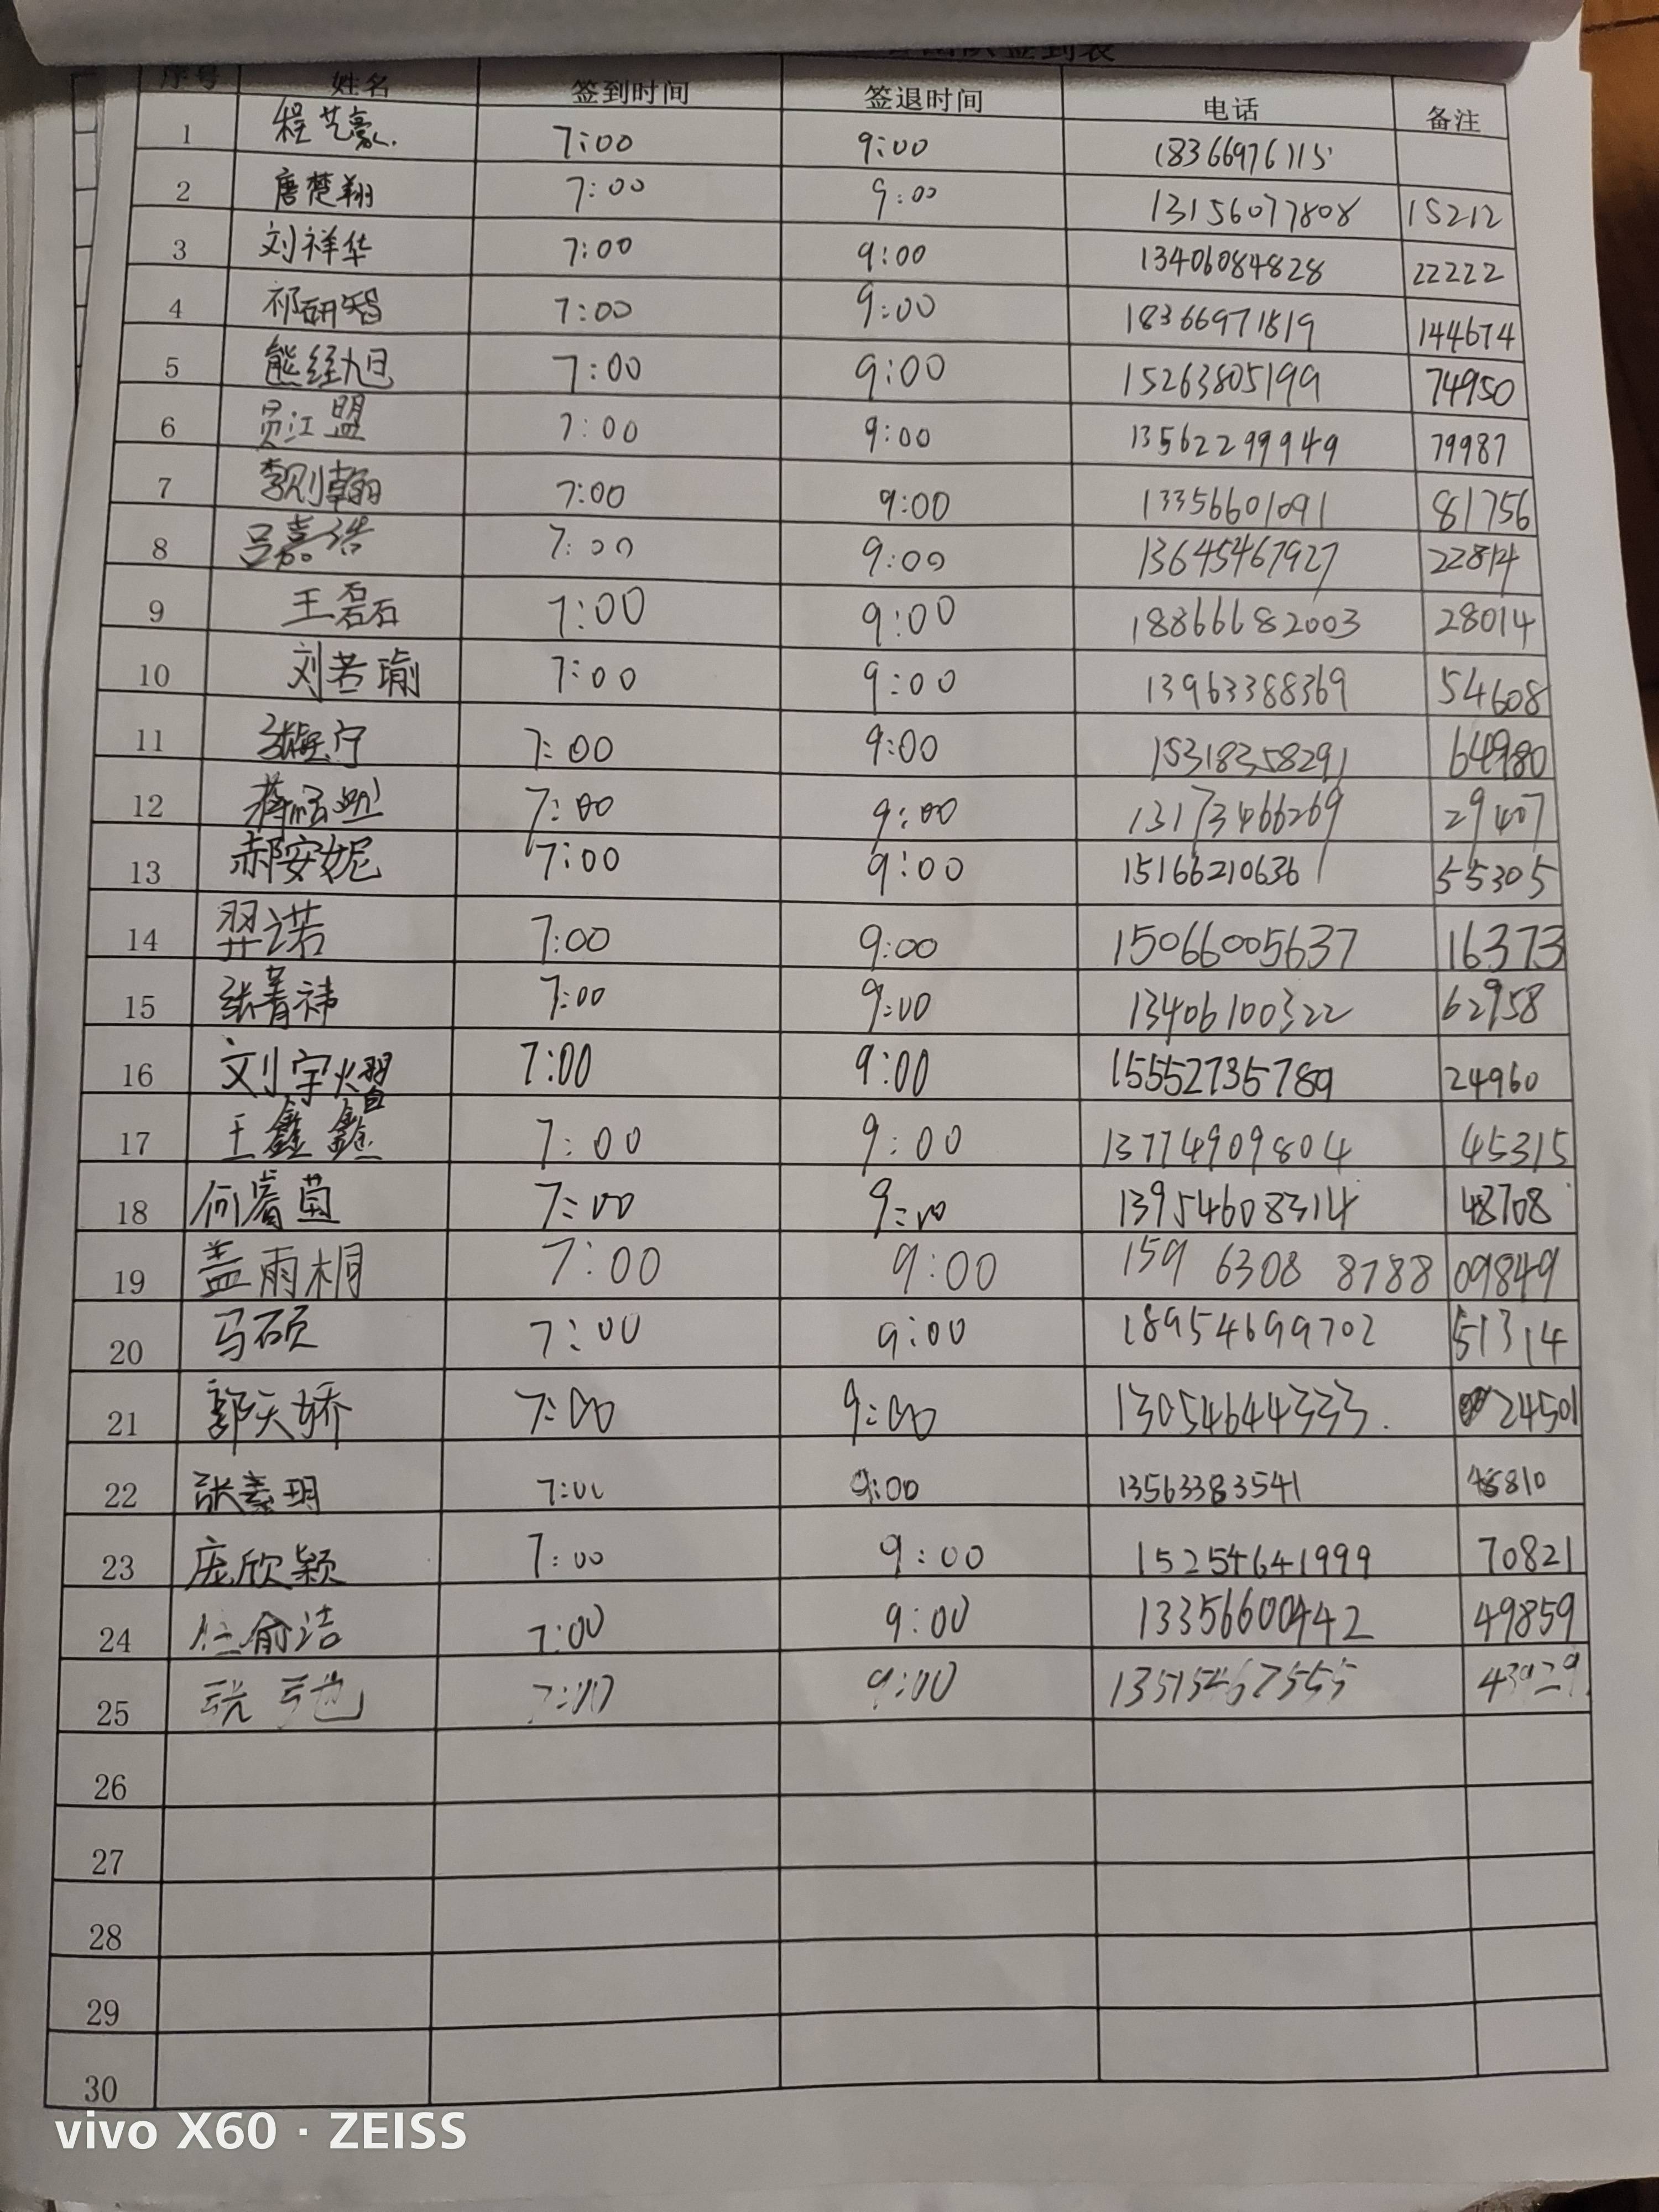 签到表
序号 姓名 签到时间 签退时间 电话 备注
1 程艺豪 7:00 9:00 18366976115
2 唐楚翔 7:00 9:00 13156077808 15212
3 刘祥华 7:00 9:00 13406084828 22222
4 祁研智 7:00 9:00 18366971819 144674
5 熊经旭 7:00 9:00 15263805199 74950
6 员江盟 7:00 9:00 13562299949 79987
7 李则翰 7:00 9:00 13356601091 81756
8 吕嘉浩 7:00 9:00 13645467927 22814
9 王磊石 7:00 9:00 18866682003 28014
10 刘若瑜 7:00 9:00 13963388369 54608
11 7:00 9:00 15318358291 64980
12 7:00 9:00 13173466269 29407
13 郝安妮 7:00 9:00 15166210636 55305
14 羿诺 7:00 9:00 15066005637 16373
15 张菁祎 7:00 9:00 13406100322 62958
16 刘宇熠 7:00 9:00 15552735789 24960
17 王鑫鑫 7:00 9:00 13774909804 45315
18 何睿茵 7:00 9:00 13954608314 48708
19 盖雨桐 7:00 9:00 159 6308 8788 09849
20 马硕 7:00 9:00 18954699702 51314
21 郭天娇 7:00 9:00 13054644333. 24501
22 张素玥 7:00 9:00 13563383541 48810
23 庞欣颖 7:00 9:00 15254641999 70821
24 任俞洁 7:00 9:00 13356600442 49859
25 张弛 7:00 9:00 13515467555 43929
26
27
28
29
30
vivo X60 · ZEISS